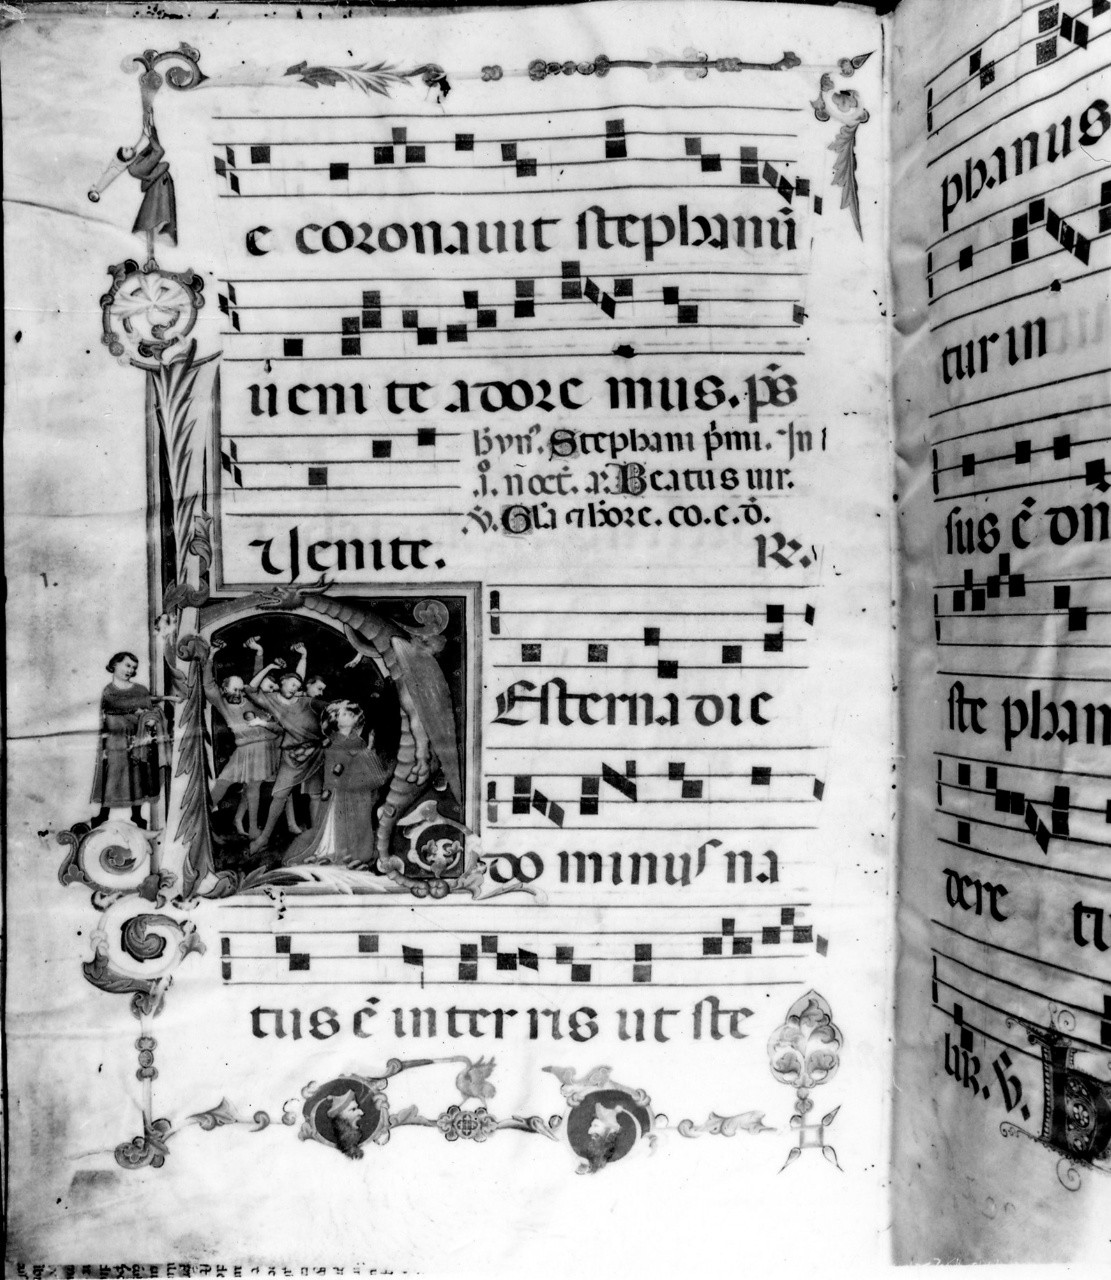 e coronauit stephanū
ueni te adore mus. ps̄
hyn̄. Stephani p̄mi. In
.i. noct. a. Beatus uir.
℣. Gła ⁊ hore. co. e. d.
Uenite. R℣.
Esterna die
do minus na
tus ē in ter ris ut ste
phanus
tur in
sus ē dn̄
ste phan
dere tu
℣.